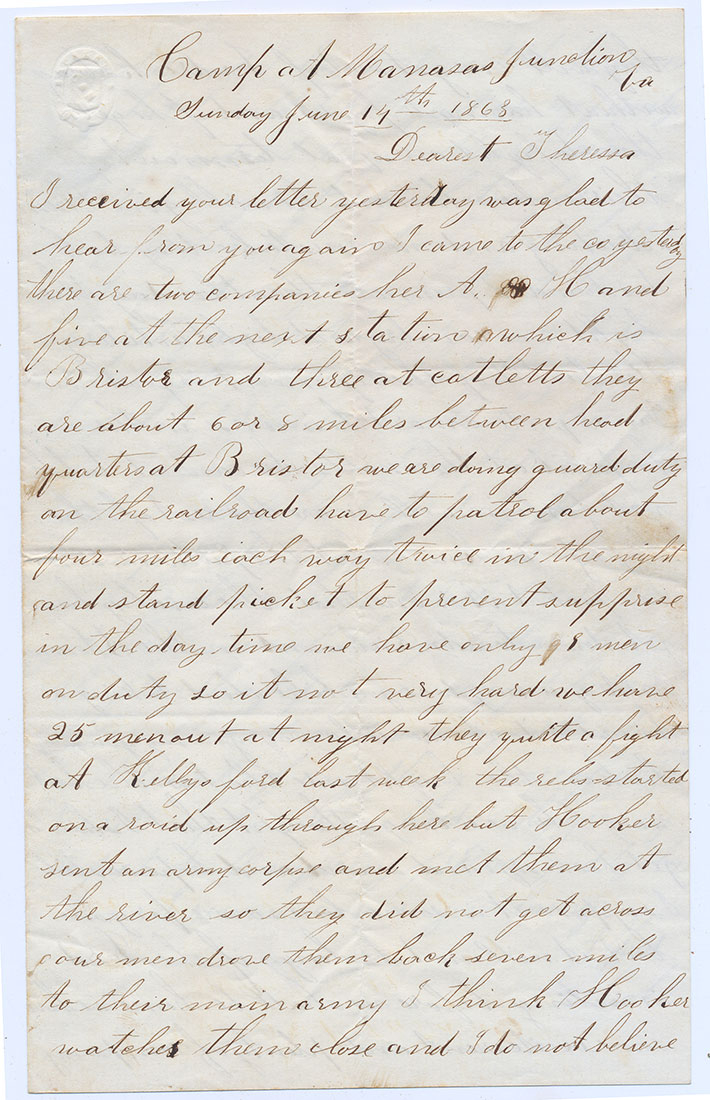 Camp at Manasas Junction
Va
Sunday June 14th 1863
Dearest Theressa
I received your letter yesterday was glad to
hear from you again I came to the co yesterday
there are two companies her A. & H and
five at the next station which is
Bristor and three at catletts they
are about 6 or 8 miles between head
quarters at Bristor we are doing guard duty
on the railroad have to patrol about
four miles each way twice in the night
and stand picket to prevent supprise
in the day time we have only 8 men
on duty so it not very hard we have
25 men out at night they quite a fight
at Kellys ford last week the rebs started
on a raid up through here but Hooker
sent an army corpse and met them at
the river so they did not get across
our men drove them back seven miles
to their main army I think Hooker
watches them close and I do not believe